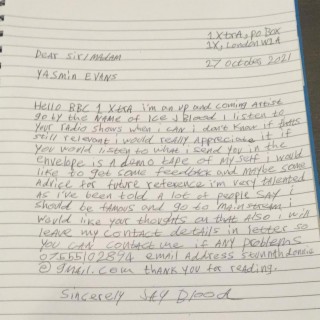 1 XtrA, PO Box
1X, London W1A
Dear Sir/Madam
27 October 2021
YASmin EVANS
Hello BBC 1 Xtra i'm an up and coming Artist
go by the NAME of Ice J Blood I listen to
your radio shows when i can i don't know if thats
still relevant i would really Appreciate it if
you would listen to what i send you in the
envelope is A demo tape of My Self i would
like to get some feedback and maybe some
Advice for future reference i'm very talented
as i've been told a lot of people SAY i
should be famous and go to mainstream i
would like your thoughts on that Also i will
leave my contact details in letter so
you CAN contact me if ANY problems
07555102894 email Address
@ gmail.com thank you for reading.
Sincerely JAY Blood